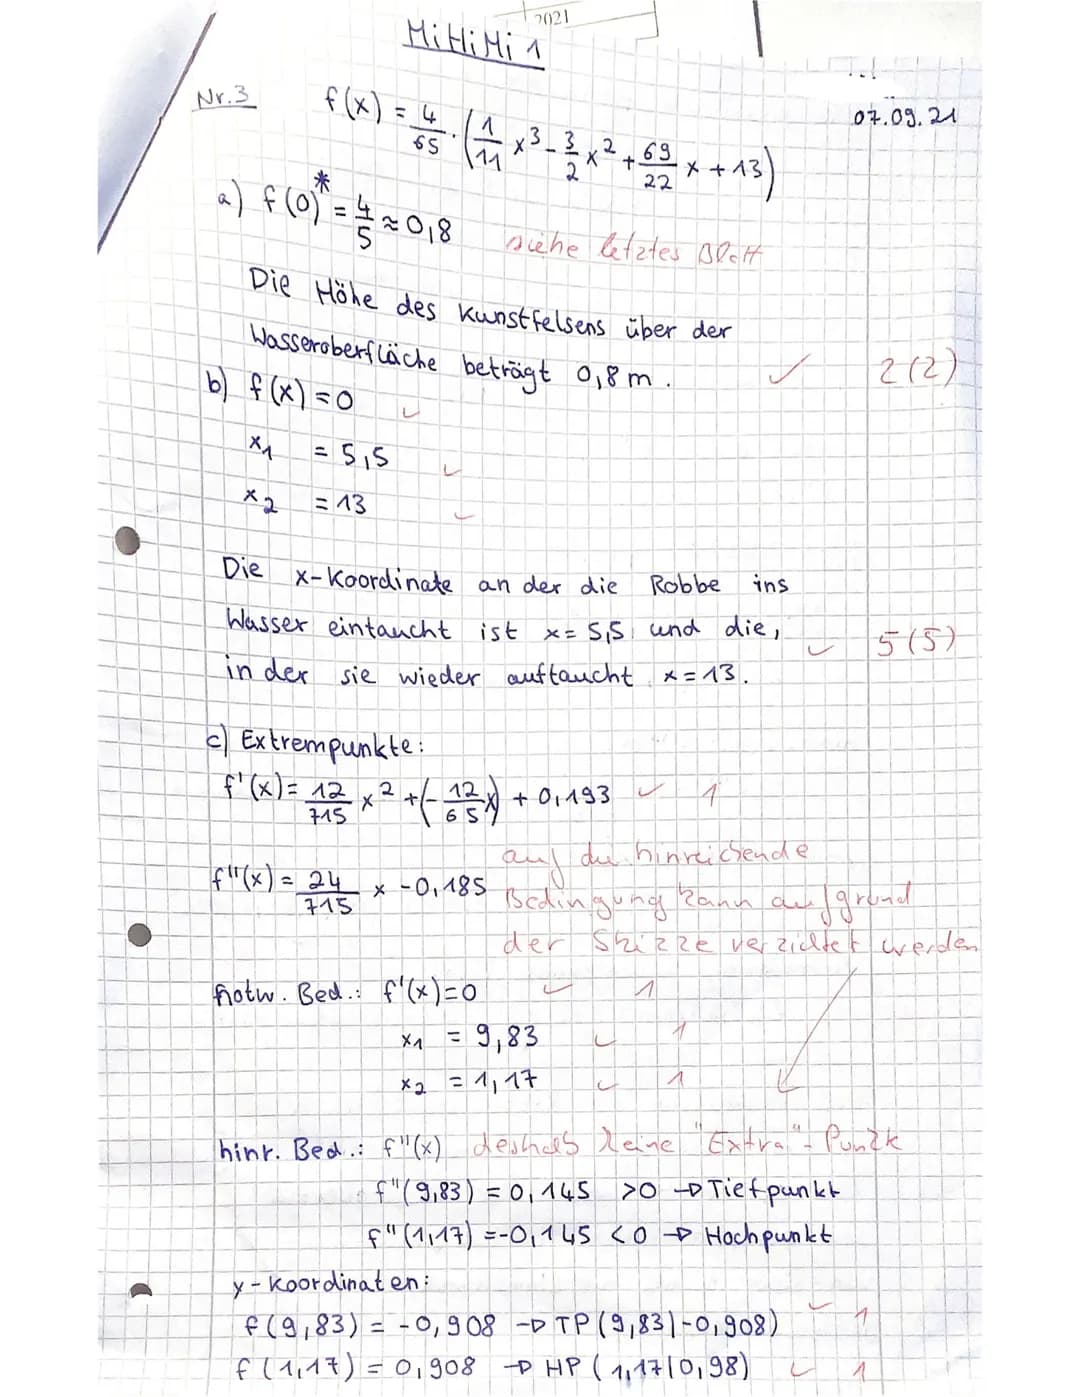 2021
MiHiMi 1
07.09.21
Nr.3 f(x) = 4/65 · (1/11 x³ - 3/2 x² + 69/22 x + 13)
a) f(0)* = 4/5 ≈ 0,8 siehe letztes Blatt
Die Höhe des Kunstfelsens über der
Wasseroberfläche beträgt 0,8m. ✓ 2(2)
b) f(x) = 0 ✓
x₁ = 5,5 ✓
x₂ = 13 ✓
Die x-Koordinate an der die Robbe ins
Wasser eintaucht ist x= 5,5 und die,
in der sie wieder auftaucht x=13. ✓ 5(5)
c) Extrempunkte:
f'(x) = 12/715 x² + (- 12/65 x) + 0,193 ✓ 1
f''(x) = 24/715 x - 0,185
auf die hinreichende
Bedingung kann aufgrund
der Skizze verzichtet werden
notw. Bed.: f'(x)=0 ✓ 1
x₁ = 9,83 ✓ 1
x₂ = 1,17 ✓ 1
hinr. Bed.: f''(x) deshalb keine "Extra"-Punkte
f''(9,83) = 0,145 >0 → Tiefpunkt
f''(1,17) =-0,145 <0 → Hochpunkt
y-Koordinaten:
f(9,83) = -0,908 → TP(9,83|-0,908) ✓ 1
f(1,17) = 0,908 → HP (1,17|0,98) ✓ 1